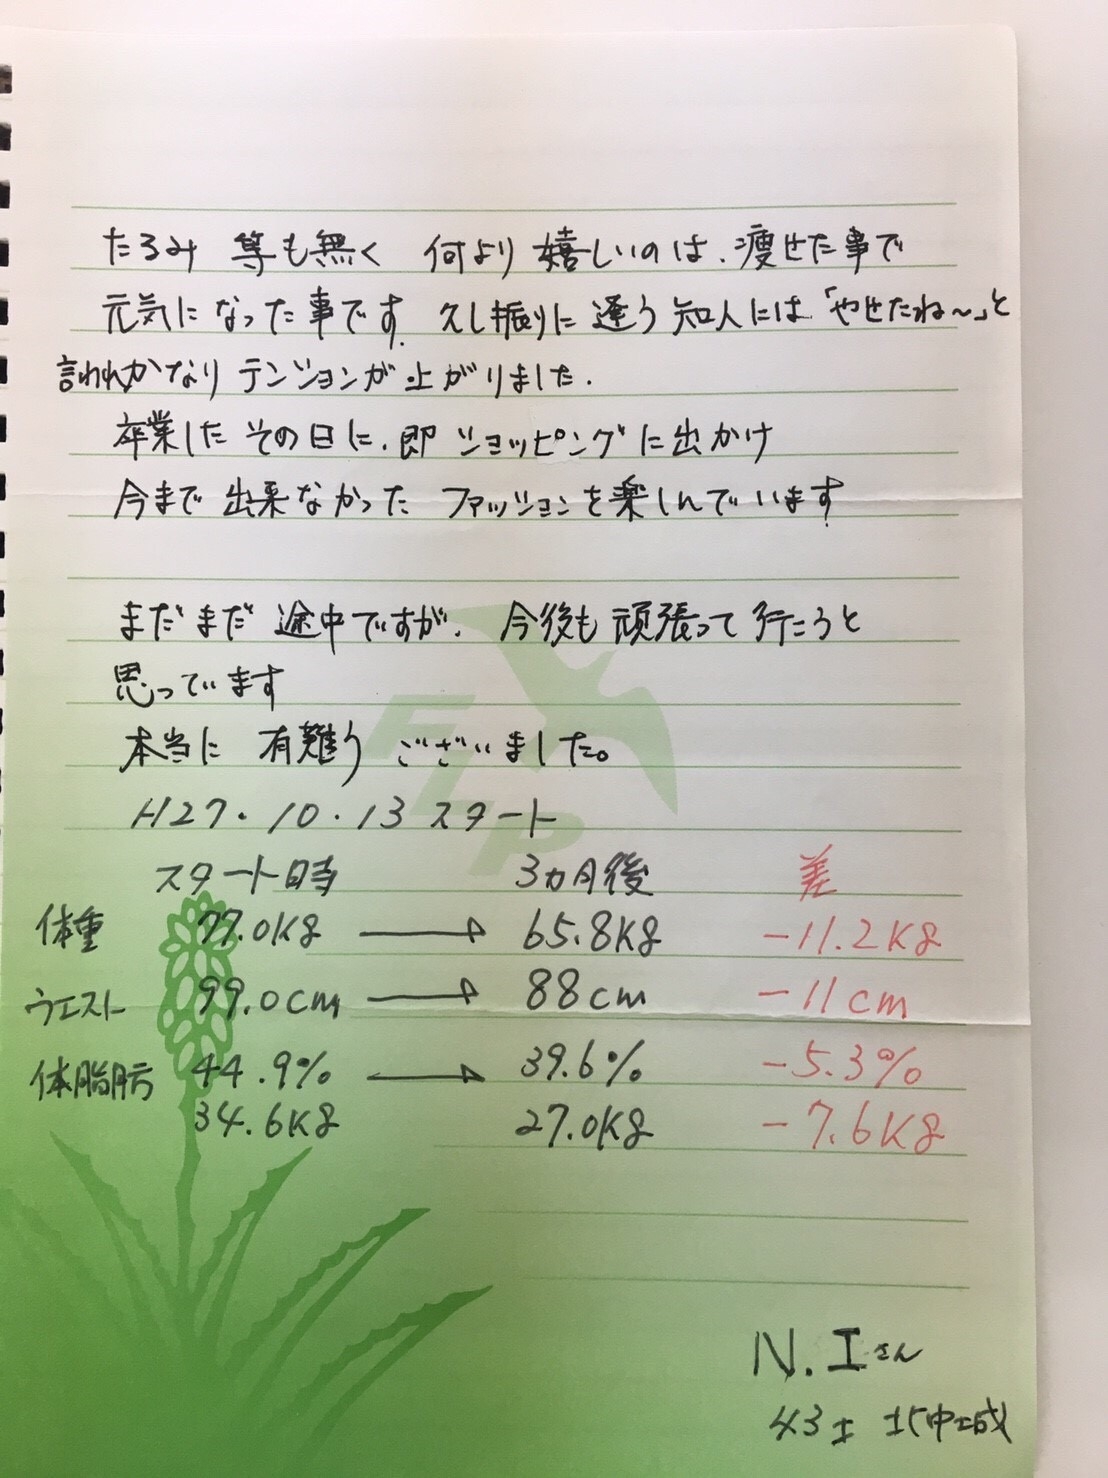 たるみ 等も無く 何より 嬉しいのは、痩せた事で
元気になった事です。久し振りに 逢う 知人には「やせたね～」と
言われかなり テンションが上がりました.
卒業した その日に、即 ショッピングに出かけ
今まで 出来なかった ファッションを楽しんでいます
まだまだ 途中ですが、今後も 頑張って 行こうと
思っています
本当に 有難う ございました。
H27.10.13 スタート
スタート時 3カ月後 差
体重 77.0Kg → 65.8Kg -11.2Kg
ウエスト 99.0cm → 88cm -11cm
体脂肪 44.9% → 39.6% -5.3%
34.6Kg 27.0Kg -7.6Kg
FLP
N.Iさん
43才 北中城